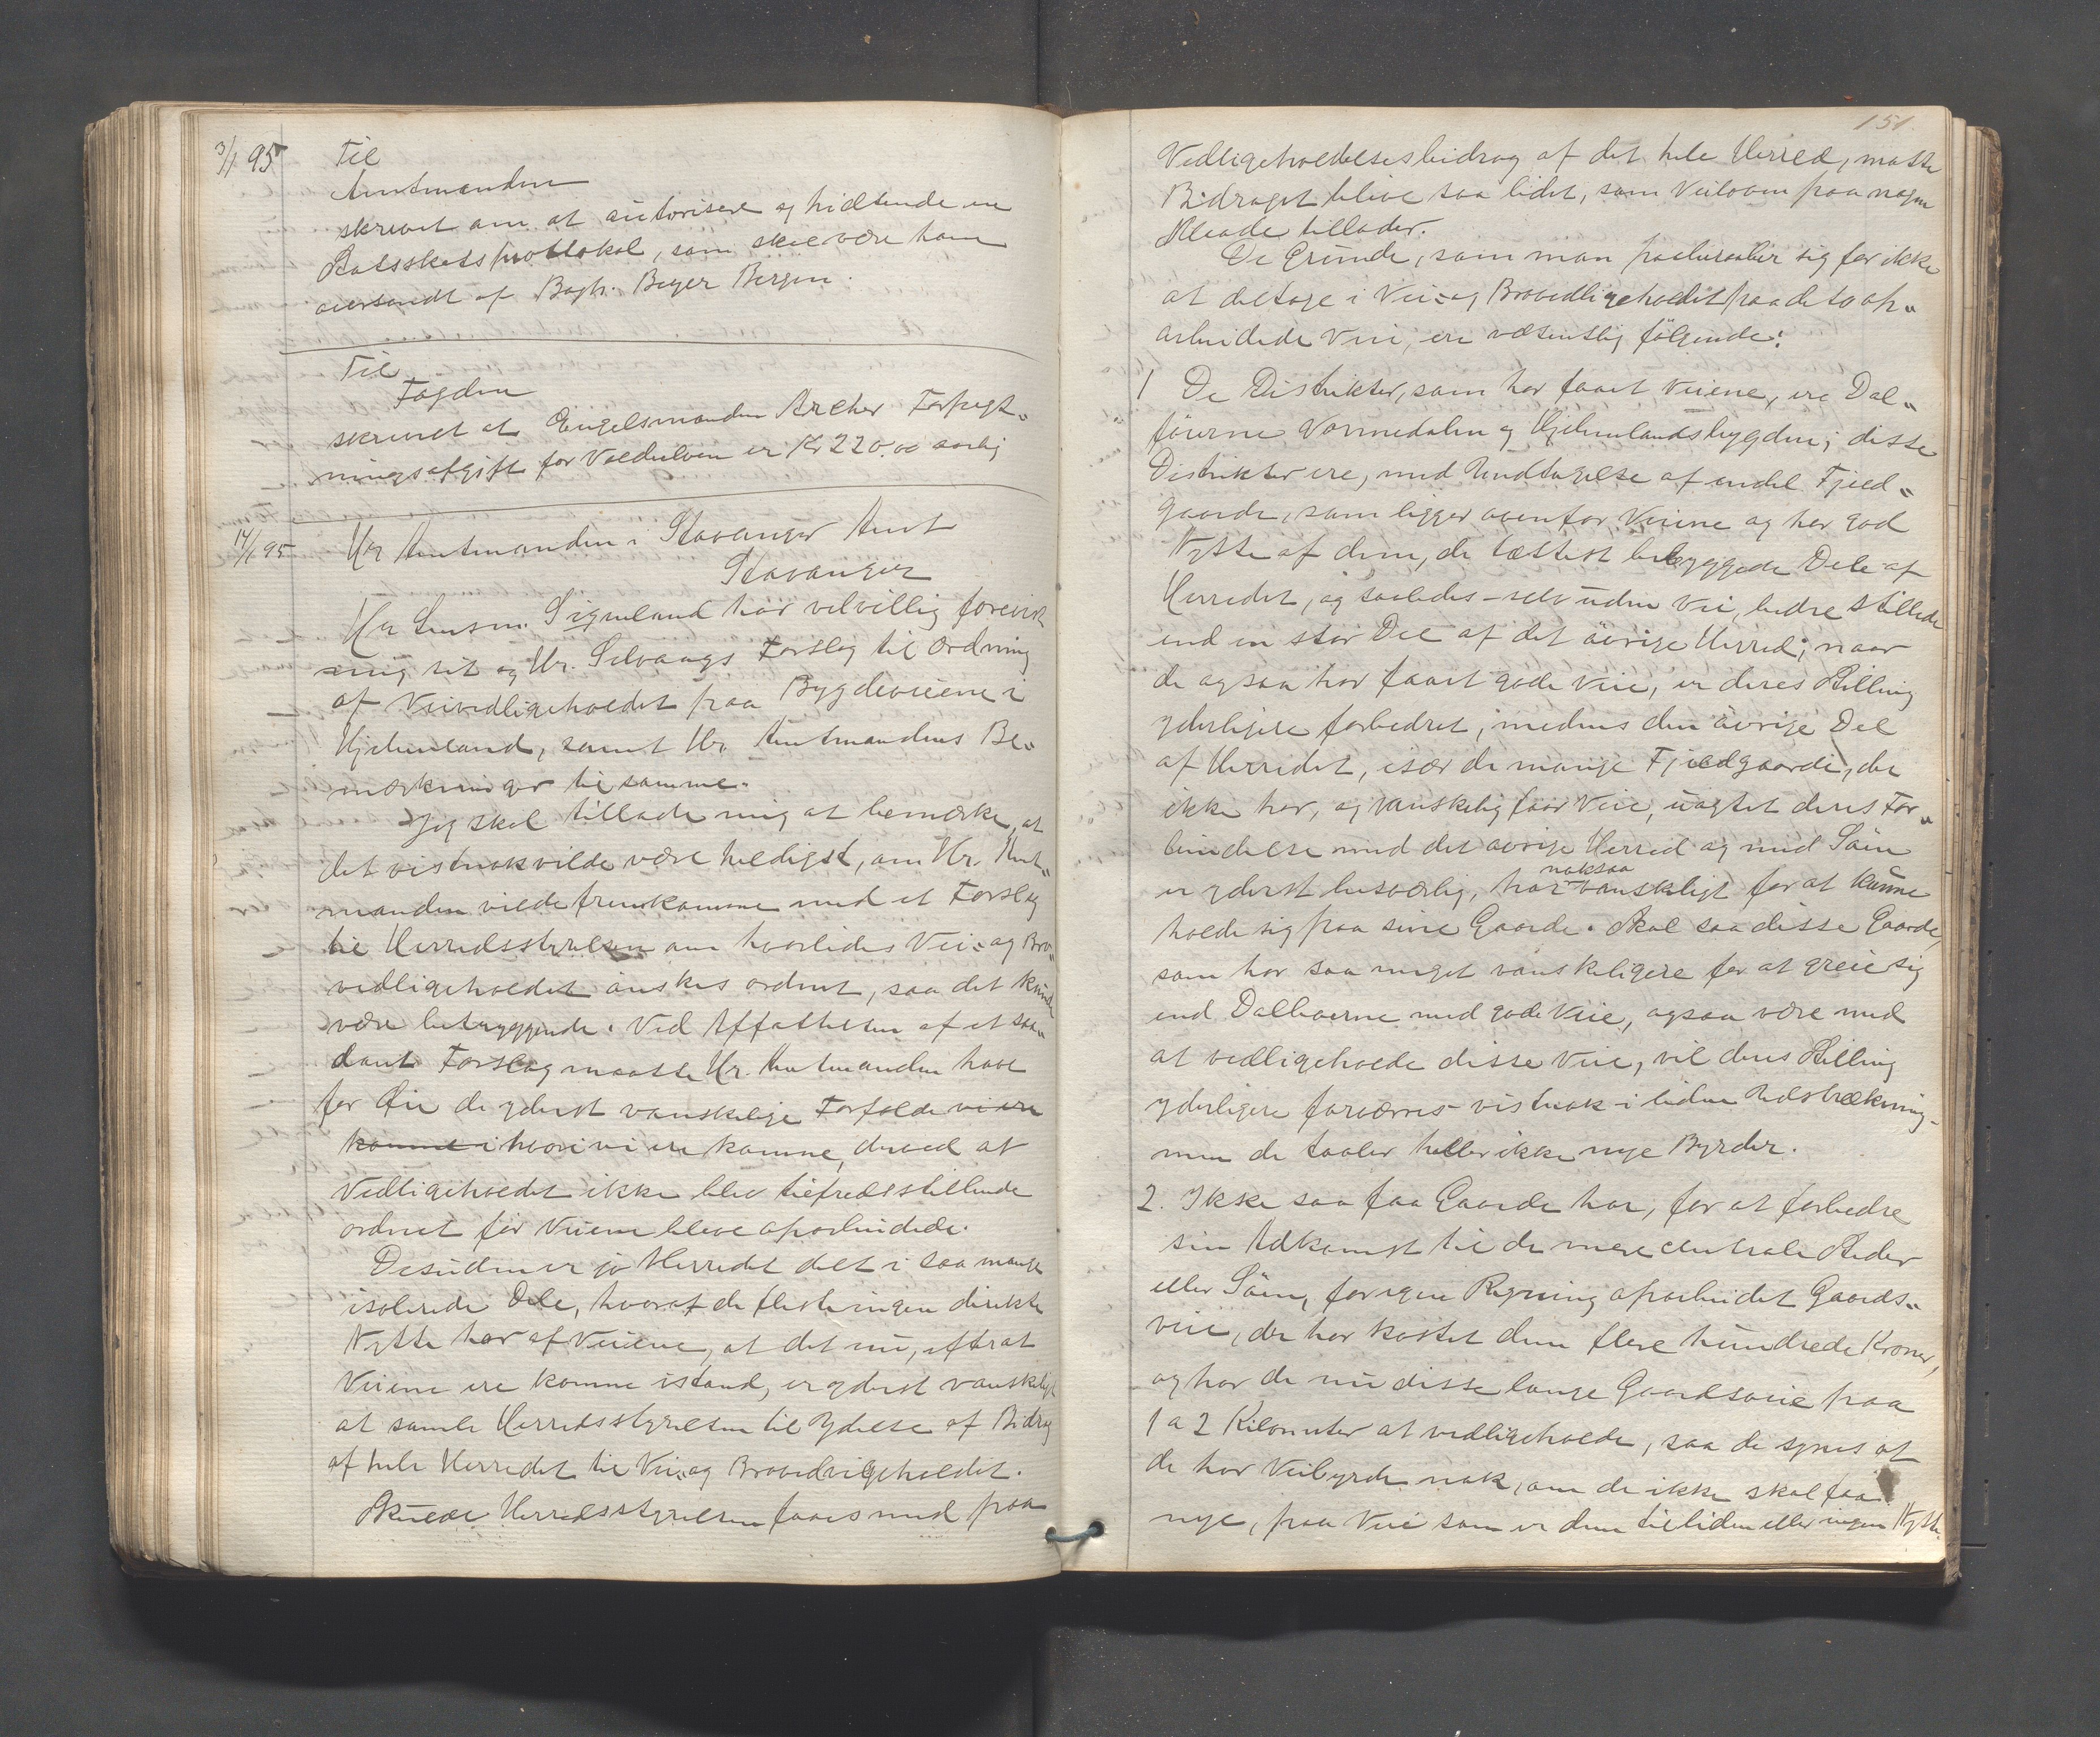 3/1 95 Til
Amtmanden
skrevet om at autorisere og hidsende en
Statsskatsprottokol, som skal være ham
oversendt af Bogh. Beyer Bergen.
Til
Fogden
skrevet at Engelsmanden Archer Forpagt-
ningsafgift for Voldelven er Kr 220.00 aarlig
14/1 95 Hr Amtmanden i Stavanger Amt
Stavanger
Hr Lensm. Sigmeland har velvillig forevist
mig sit og Hr. Selvaags Forslag til Ordning
af Veivedligeholdet paa Bygdeveiene i
Hjelmeland, samt Hr. Amtmandens Be-
mærkninger til samme.
Jeg skal tillade mig at bemærke, at
det vistnok vilde være heldigst, om Hr. Amt-
manden vilde fremkomme med et Forslag
til Herredsstyrelsen om hvorledes Vei- og Bro-
vedligeholdet ønskes ordnet, saa det kunde
være betryggende. Ved Affattelsen af et saa-
dant Forslag maatte Hr. Amtmanden have
for Øie de yderst vanskelige Forholde vi ere
komne i hvori vi ere komne, derved at
Vedligeholdet ikke blev tilfredsstillende
ordnet før Veiene bleve oparbeidede.
Desuden er jo Herredet delt i saa mange
isolerede Dele, hvoraf de fleste ingen direkte
Nytte har af Veiene, at det nu, efterat
Veiene ere komne istand, er yderst vanskeligt
at samle Herredsstyrelsen til Ydelse af Bidrag
af hele Herredet til Vei- og Brovedligeholdet.
Skulde Herredsstyrelsen faaes med paa
151.
Vedligeholdelsesbidrag af det hele Herred, maatte
Bidraget blive saa lidet, som Veiloven paa nogen
Maade tillader.
De Grunde, som man paaberaaber sig for ikke
at deltage i Vei- og Brovedligeholdet paa de to op-
arbeidede Veie, ere væsentlig følgende:
1 De Distrikter, som har faaet Veiene, ere Dal-
førerne Vormedalen og Hjelmelandsbygden; disse
Distrikter ere, med Undtagelse af endel Fjeld-
gaarde, som ligger ovenfor Veiene og har god
Nytte af dem, de tættest bebyggede Dele af
Herredet, og saaledes - selv uden Vei, bedre stillede
end en stor Del af det øvrige Herred; naar
de ogsaa har faaet gode Veie, er deres Stilling
yderligere forbedret, medens den øvrige Del
af Herredet, især de mange Fjeldgaarde, der
ikke har, og vanskelig faar Veie, uagtet deres For-
bindelse med det øvrige Herred og med Søen
er yderst besværlig, har noksaa vanskeligt for at kunne
holde sig paa sine Gaarde. Skal saa disse Gaarde,
som har saa meget vanskeligere for at greie sig
end Dalboerne med gode Veie, ogsaa være med
at vedligeholde disse Veie, vil deres Stilling
yderligere forværres - vistnok i liden Udstrækning -
men de taaler heller ikke nye Byrder.
2. Ikke saa faa Gaarde har, for at forbedre
sin Adkomst til de mere centrale Steder
eller Søen, for egen Regning oparbeidet Gaards-
veie, der har kostet dem flere hundrede Kroner,
og har de nu disse lange Gaardsveie paa
1 a 2 Kilometer at vedligeholde, saa de synes at
de har Veibyrde nok, om de ikke skal faa
nye, paa Veie som er dem til liden eller ingen Nytte.